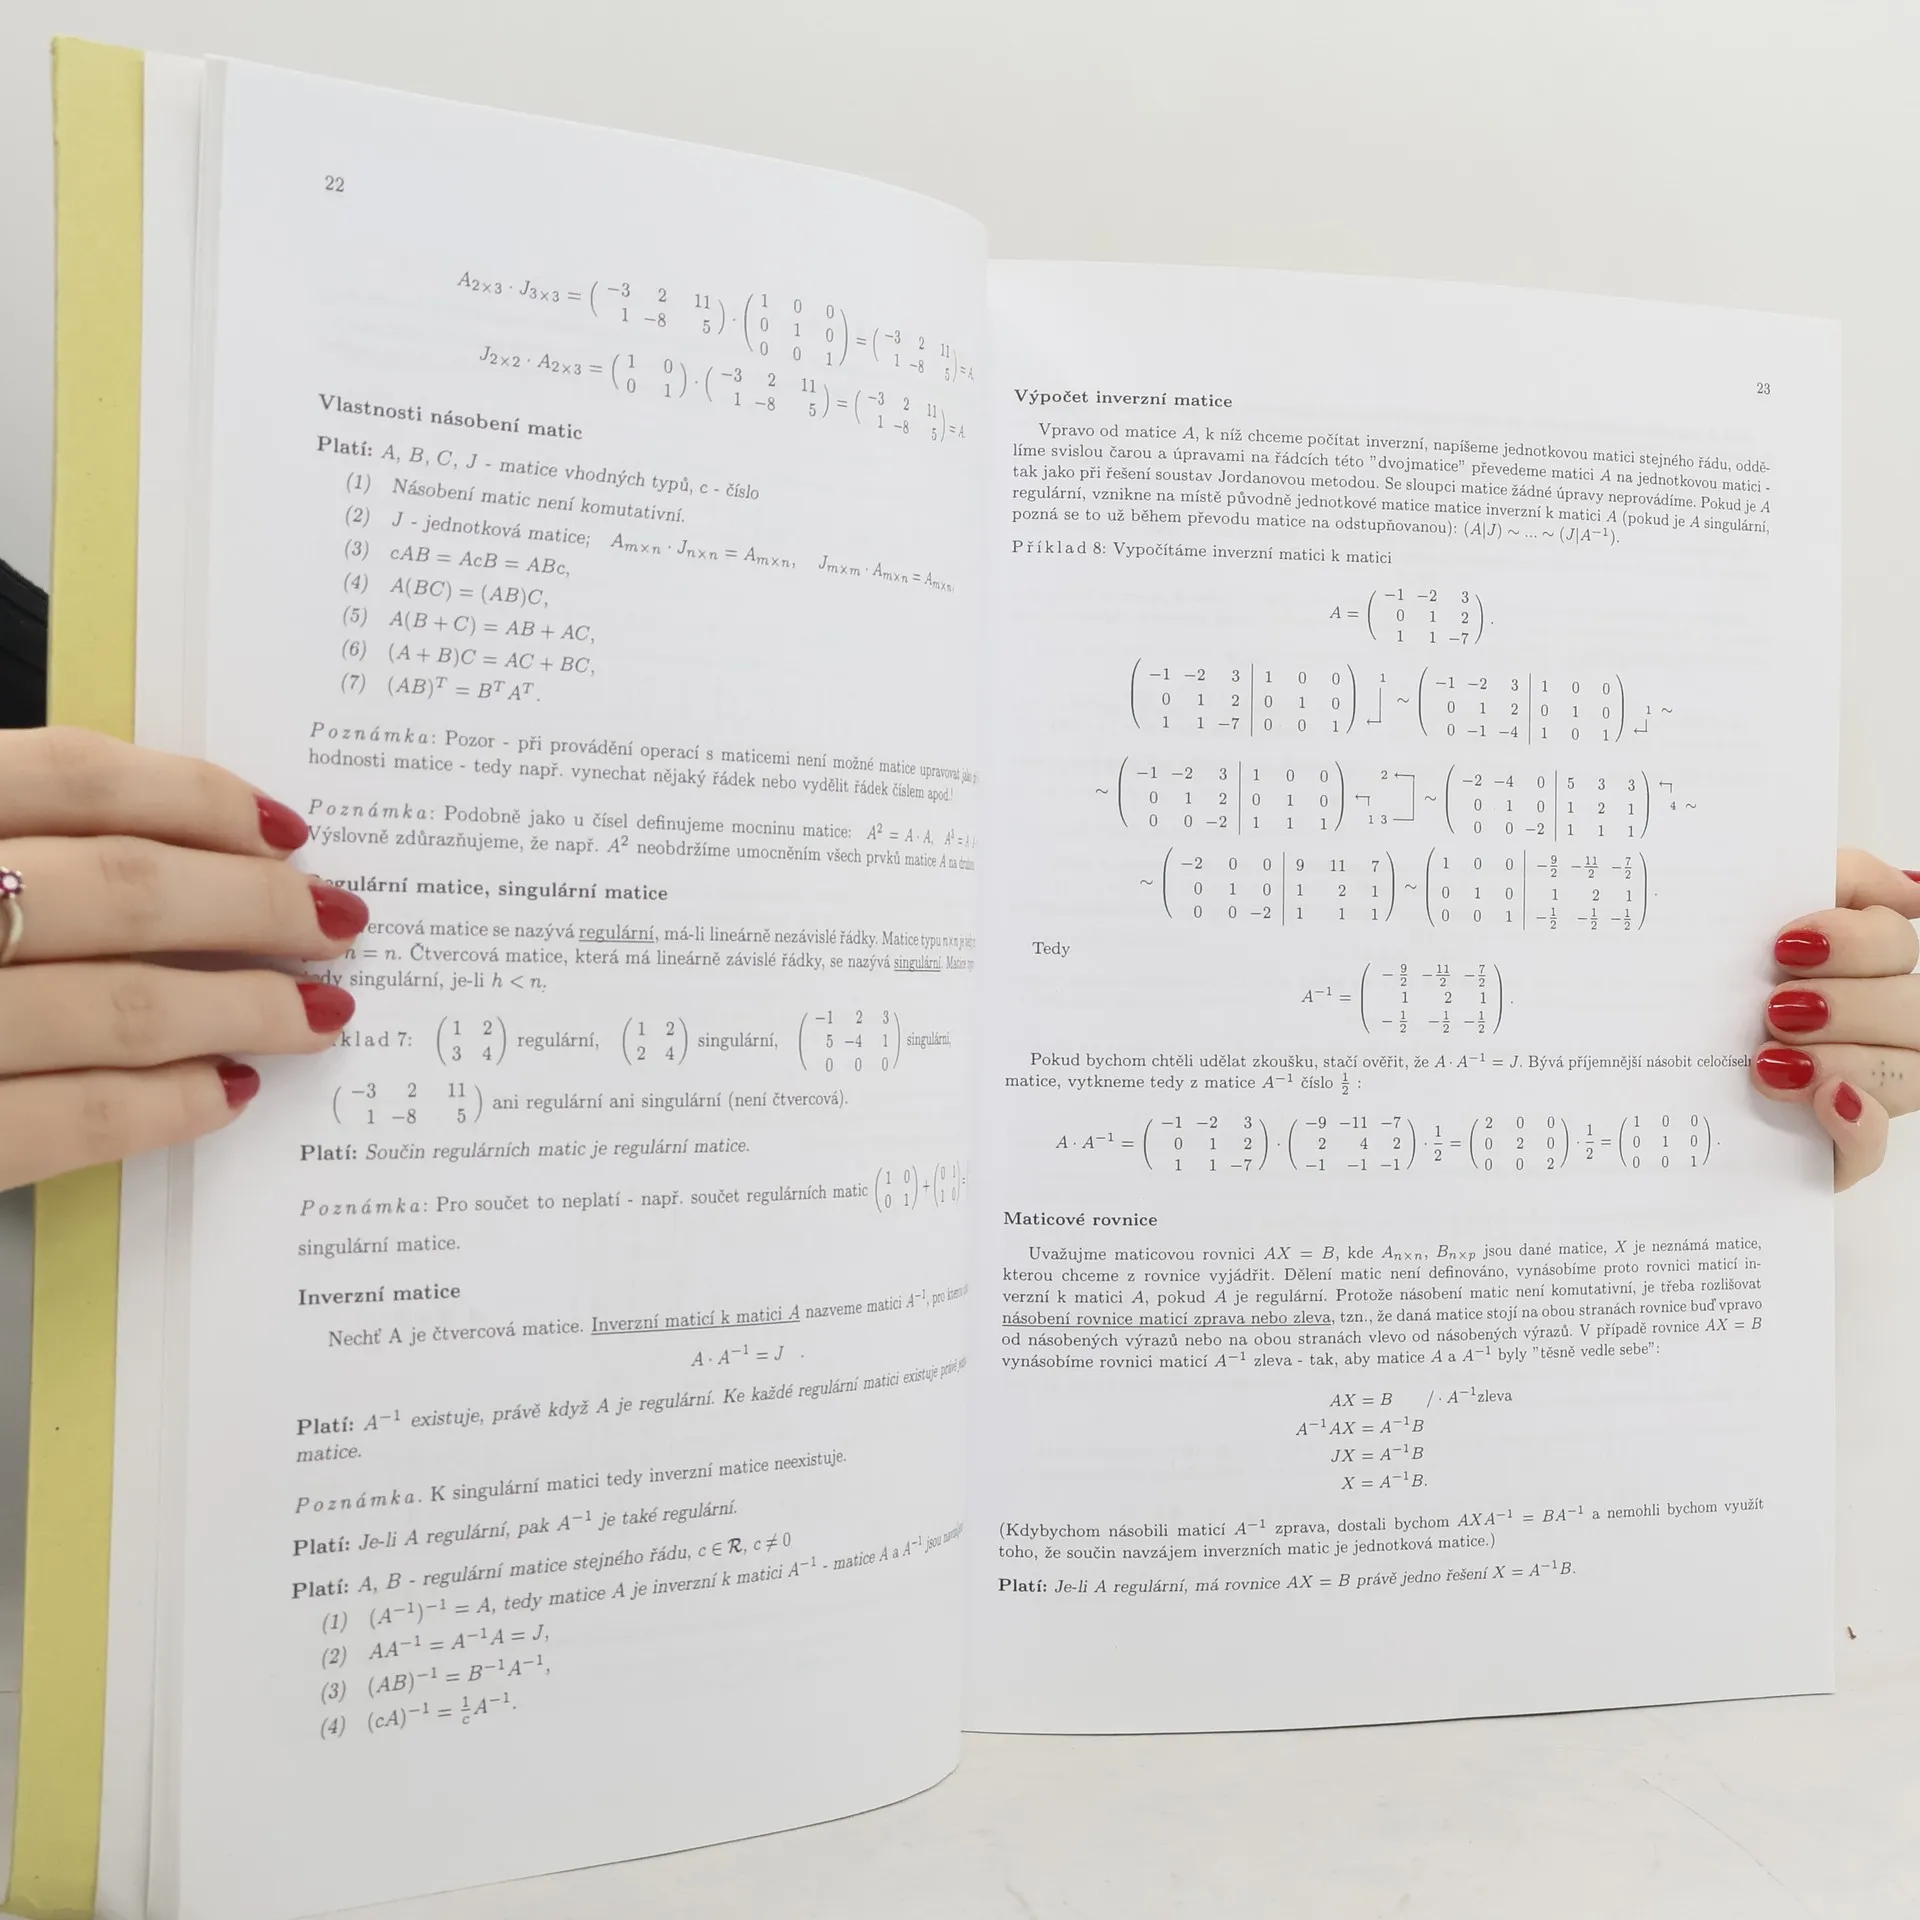 22
A₂ₓ₃ · J₃ₓ₃ = ( −3 2 11 ; 1 −8 5 ) · ( 1 0 0 ; 0 1 0 ; 0 0 1 ) = ( −3 2 11 ; 1 −8 5 ) = A
J₂ₓ₂ · A₂ₓ₃ = ( 1 0 ; 0 1 ) · ( −3 2 11 ; 1 −8 5 ) = ( −3 2 11 ; 1 −8 5 ) = A
Vlastnosti násobení matic
Platí: A, B, C, J - matice vhodných typů, c - číslo
(1) Násobení matic není komutativní.
(2) J - jednotková matice; Aₘₓₙ · Jₙₓₙ = Aₘₓₙ, Jₘₓₘ · Aₘₓₙ = Aₘₓₙ,
(3) cAB = AcB = ABc,
(4) A(BC) = (AB)C,
(5) A(B + C) = AB + AC,
(6) (A + B)C = AC + BC,
(7) (AB)ᵀ = BᵀAᵀ.
Poznámka: Pozor - při provádění operací s maticemi není možné matice upravovat
hodnosti matice - tedy např. vynechat nějaký řádek nebo vydělit řádek číslem apod.!
Poznámka: Podobně jako u čísel definujeme mocninu matice: A² = A · A,
Výslovně zdůrazňujeme, že např. A² neobdržíme umocněním všech prvků matice A na
matice, singulární matice
matice se nazývá regulární, má-li lineárně nezávislé řádky. Matice typu n×n je
n = n. Čtvercová matice, která má lineárně závislé řádky, se nazývá singulární. Matice
singulární, je-li h < n.
klad 7: ( 1 2 ; 3 4 ) regulární, ( 1 2 ; 2 4 ) singulární, ( −1 2 3 ; 5 −4 1 ; 0 0 0 ) singulární,
( −3 2 11 ; 1 −8 5 ) ani regulární ani singulární (není čtvercová).
Platí: Součin regulárních matic je regulární matice.
Poznámka: Pro součet to neplatí - např. součet regulárních matic ( 1 0 ; 0 1 ) + ( 0 1 ; 1 0 ) =
singulární matice.
Inverzní matice
Nechť A je čtvercová matice. Inverzní maticí k matici A nazveme matici A⁻¹, pro
A · A⁻¹ = J .
Platí: A⁻¹ existuje, právě když A je regulární. Ke každé regulární matici existuje právě
matice.
Poznámka. K singulární matici tedy inverzní matice neexistuje.
Platí: Je-li A regulární, pak A⁻¹ je také regulární.
Platí: A, B - regulární matice stejného řádu, c ∈ R, c ≠ 0
(1) (A⁻¹)⁻¹ = A, tedy matice A je inverzní k matici A⁻¹ - matice A a A⁻¹ jsou
(2) AA⁻¹ = A⁻¹A = J,
(3) (AB)⁻¹ = B⁻¹A⁻¹,
(4) (cA)⁻¹ = 1/c A⁻¹.
23
Výpočet inverzní matice
Vpravo od matice A, k níž chceme počítat inverzní, napíšeme jednotkovou matici stejného řádu, oddě-
líme svislou čarou a úpravami na řádcích této "dvojmatice" převedeme matici A na jednotkovou matici -
tak jako při řešení soustav Jordanovou metodou. Se sloupci matice žádné úpravy neprovádíme. Pokud je A
regulární, vznikne na místě původně jednotkové matice matice inverzní k matici A (pokud je A singulární,
pozná se to už během převodu matice na odstupňovanou): (A|J) ∼ ... ∼ (J|A⁻¹).
Příklad 8: Vypočítáme inverzní matici k matici
A = ( −1 −2 3 ; 0 1 2 ; 1 1 −7 ) .
( −1 −2 3 | 1 0 0 ; 0 1 2 | 0 1 0 ; 1 1 −7 | 0 0 1 ) 1 ∼ ( −1 −2 3 | 1 0 0 ; 0 1 2 | 0 1 0 ; 0 −1 −4 | 1 0 1 ) 1 ∼
∼ ( −1 −2 3 | 1 0 0 ; 0 1 2 | 0 1 0 ; 0 0 −2 | 1 1 1 ) 2 1 3 ∼ ( −2 −4 0 | 5 3 3 ; 0 1 0 | 1 2 1 ; 0 0 −2 | 1 1 1 ) 4 ∼
∼ ( −2 0 0 | 9 11 7 ; 0 1 0 | 1 2 1 ; 0 0 −2 | 1 1 1 ) ∼ ( 1 0 0 | −9/2 −11/2 −7/2 ; 0 1 0 | 1 2 1 ; 0 0 1 | −1/2 −1/2 −1/2 ) .
Tedy
A⁻¹ = ( −9/2 −11/2 −7/2 ; 1 2 1 ; −1/2 −1/2 −1/2 ) .
Pokud bychom chtěli udělat zkoušku, stačí ověřit, že A · A⁻¹ = J. Bývá příjemnější násobit celočíseln
matice, vytkneme tedy z matice A⁻¹ číslo 1/2 :
A · A⁻¹ = ( −1 −2 3 ; 0 1 2 ; 1 1 −7 ) · ( −9 −11 −7 ; 2 4 2 ; −1 −1 −1 ) · 1/2 = ( 2 0 0 ; 0 2 0 ; 0 0 2 ) · 1/2 = ( 1 0 0 ; 0 1 0 ; 0 0 1 ) .
Maticové rovnice
Uvažujme maticovou rovnici AX = B, kde Aₙₓₙ, Bₙₓₚ jsou dané matice, X je neznámá matice,
kterou chceme z rovnice vyjádřit. Dělení matic není definováno, vynásobíme proto rovnici maticí in-
verzní k matici A, pokud A je regulární. Protože násobení matic není komutativní, je třeba rozlišovat
násobení rovnice maticí zprava nebo zleva, tzn., že daná matice stojí na obou stranách rovnice buď vpravo
od násobených výrazů nebo na obou stranách vlevo od násobených výrazů. V případě rovnice AX = B
vynásobíme rovnici maticí A⁻¹ zleva - tak, aby matice A a A⁻¹ byly "těsně vedle sebe":
AX = B / · A⁻¹zleva
A⁻¹AX = A⁻¹B
JX = A⁻¹B
X = A⁻¹B.
(Kdybychom násobili maticí A⁻¹ zprava, dostali bychom AXA⁻¹ = BA⁻¹ a nemohli bychom využít
toho, že součin navzájem inverzních matic je jednotková matice.)
Platí: Je-li A regulární, má rovnice AX = B právě jedno řešení X = A⁻¹B.